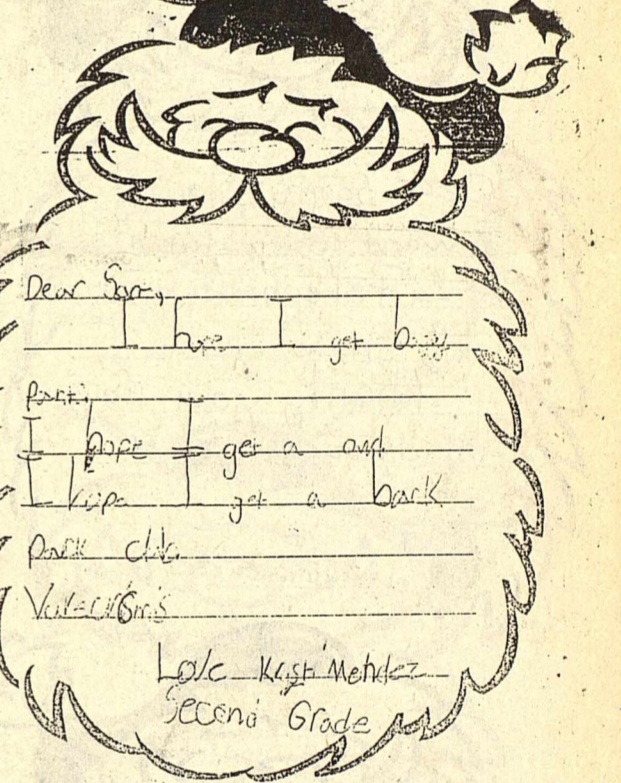 Dear San,
I hope I get bagg
Park.
I hope I get a and
I hope I get a bark
park
Love Kristi Mendez
Second Grade